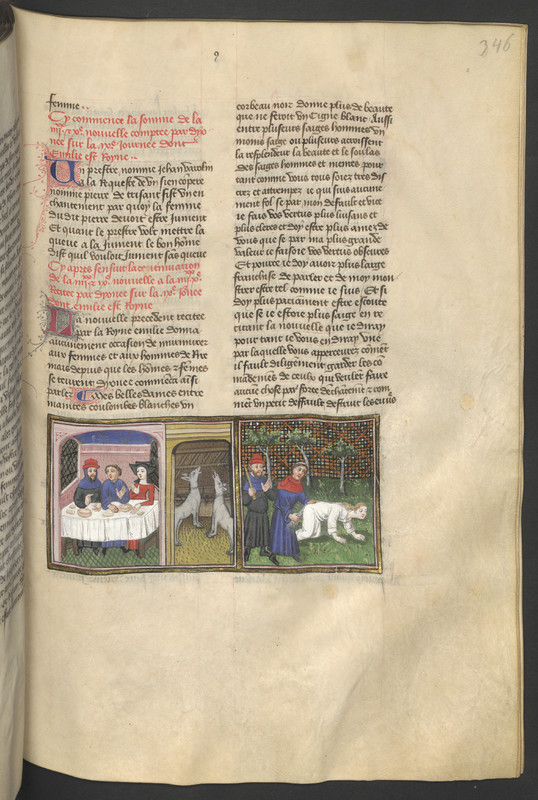 346
femme ..
Cy commence la somme de la
nouvelle comptee par dyo
nee sur la journee dont
Emilie est Royne ..
Un prestre nomme Jehan
a la Requeste de un sien copere
nomme pierre de trisant fist un en
chantement par quoy la femme
du dit pierre devoit estre Jument
Et quant le prestre volt mettre la
queue a la Jument le bon home
dist quil vouloit Jument sās queue
Cy apres sensuit la continuation
de la nouvelle
par dyonee sur la Jornee
dont emilie est Royne
La nouvelle precedent recitee
par la Royne emilie donna
aucunement occasion de murmurer
aux femmes et aux hommes de Rire
mais depuis que les hōmes z fēmes
se teurent dyonee commēca aīsi
parler Mes belles dames entre
maintes coulombes blanches un
corbeau noir donne plus de beaute
que ne feroit un Cigne blanc Aussi
entre plusieurs saiges hommes un
moins saige ou plusieurs acroissent
la resplendeur la beaute et le soulas
des saiges hommes et meurs pour
tant comme vous tous soiez tres dis
crez et attrempez ie qui suis aucune
ment fol se par mon default et vice
ie fais vos vertus plus luisans et
plus cleres ie doy estre plus amez de
vous que se par ma plus grande
valeur ie faisoie vos vertus obscures
Et pource ie doy avoir plus large
franchise de parler et de moy mon
strer estre tel comme ie suis Et si
doy plus paciamment estre escoute
que se ie estoie plus saige en re
citant la nouvelle que ie diray
pour tant ie vous en diray une
par laquelle vous appercevrez cōmēt
il fault diligemment garder les cō
mandemēs de ceulx qui veulent faire
aucūe chose par force denchantemēt z com
mēt un petit deffault deffait les